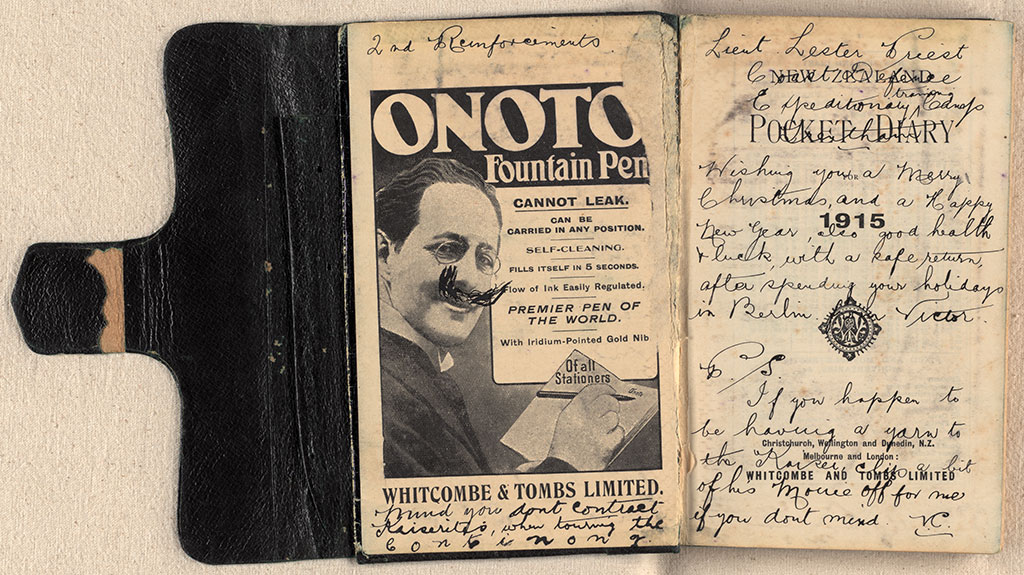 2nd Reinforcements.
ONOTO
Fountain Pen
CANNOT LEAK.
CAN BE
CARRIED IN ANY POSITION.
SELF-CLEANING.
FILLS ITSELF IN 5 SECONDS.
Flow of Ink Easily Regulated.
PREMIER PEN OF
THE WORLD.
With Iridium-Pointed Gold Nib
Of all
Stationers
WHITCOMBE & TOMBS LIMITED.
Mind you dont contract
Kaiseritis, when touring the
Continong.
Lieut Lester Priest
NEW ZEALAND
Coast Defence
training
Expeditionary Camp
POCKET DIARY
Wishing you a Merry
FOR
Christmas, and a Happy
1915
New Year, also good health
& luck, with a safe return,
after spending your holidays
in Berlin. Victor.
P.S.
If you happen to
be having a yarn to
Christchurch, Wellington and Dunedin, N.Z.
Melbourne and London:
the Kaiser, clip a bit
WHITCOMBE AND TOMBS LIMITED
of his Mouce off for me
if you dont mind. V.C.